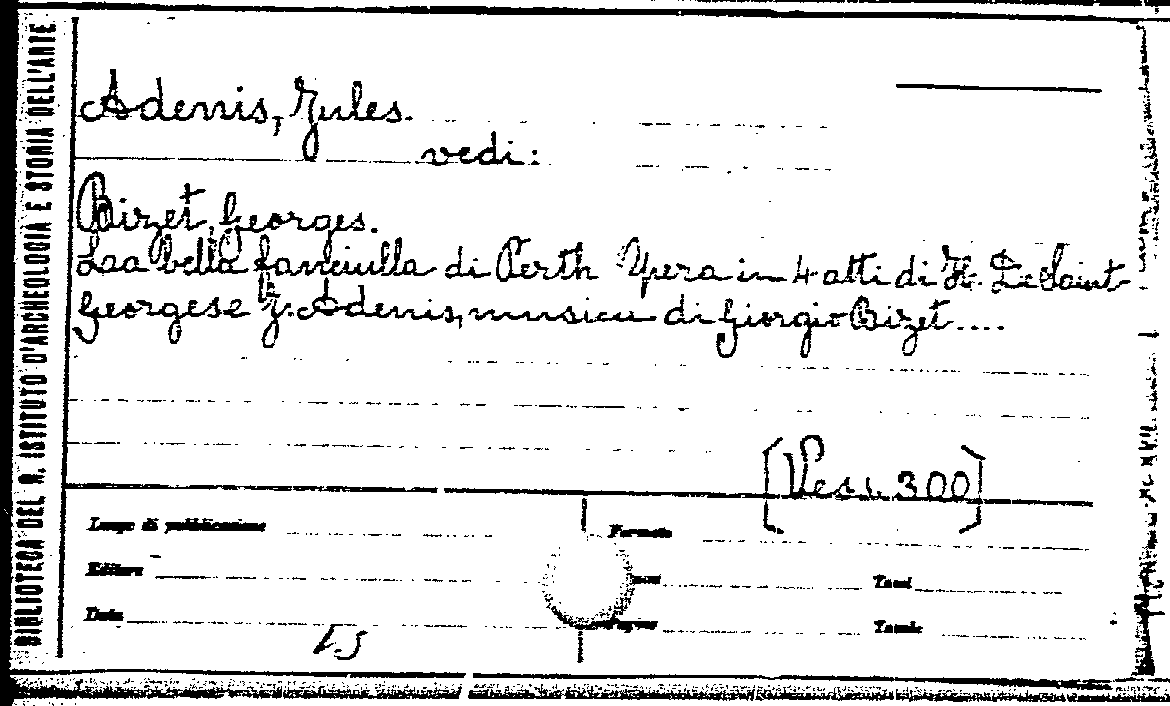 BIBLIOTECA DEL R. ISTITUTO D'ARCHEOLOGIA E STORIA DELL'ARTE
Adenis, Jules.
vedi:
Bizet, Georges.
Laa bella fanciulla di Perth Opera in 4 atti di H. De Saint-
Georges e J. Adenis, musica di Giorgio Bizet....
[Vess. 300]
Luogo di pubblicazione
Formato
Editore
Tomi
Data
Pagine
Tavole